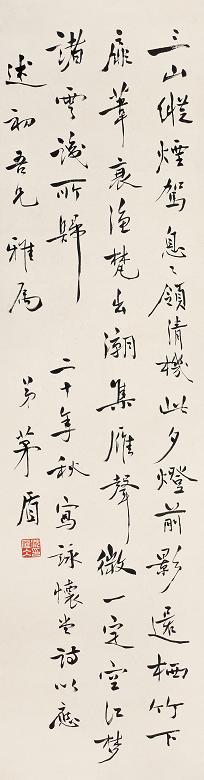 三山縱煙駕息〻領清機此夕燈前影還栖竹下
扉葦衰漁梵出潮集雁聲微一定空江夢
諸雲識所歸 二十年秋寫詠懷堂詩以應
述初吾兄雅屬 弟茅盾